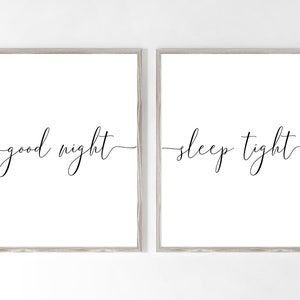 good night
sleep tight